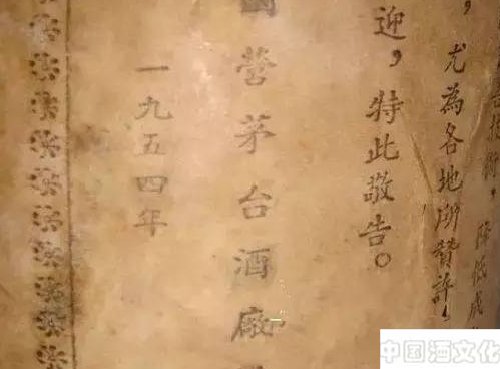 降低成
，尤為各地所贊許，
迎，特此敬告。
國營茅台酒廠
一九五四年
中国酒文化